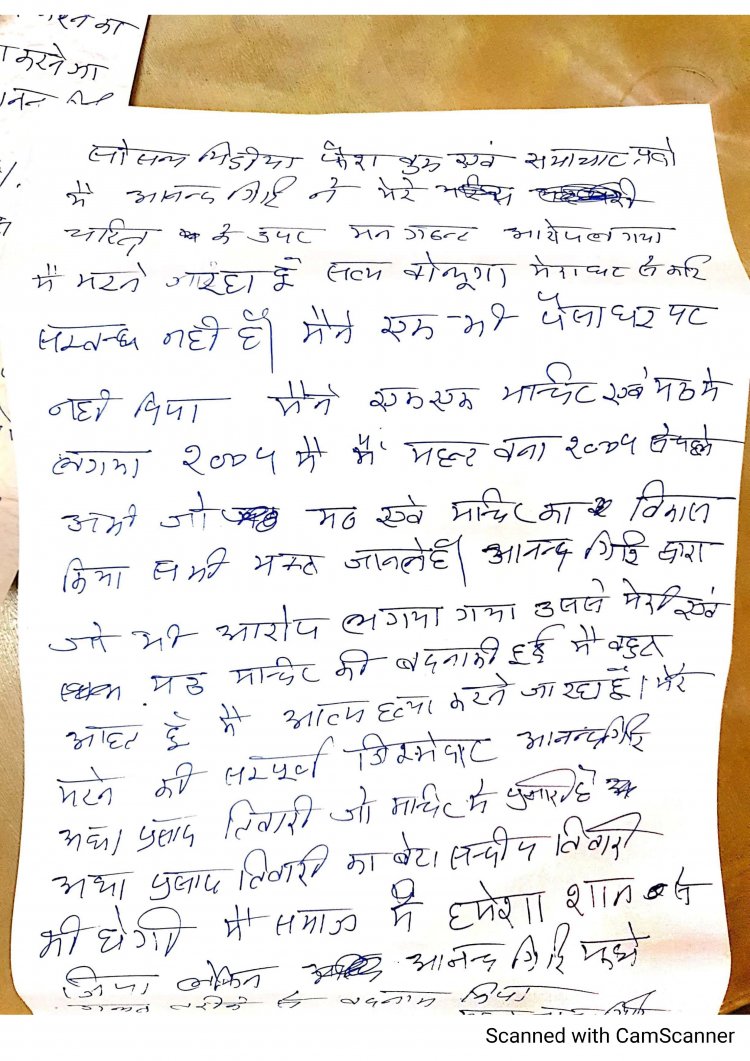 करने का
नन्द गिरि
सोसल मिडीया फेश बुक एवं समाचार पत्रो
मै आनन्द गिरि ने मेरे
चरित्र के उपर मन गढन्ट आरोप लगाया
मै मरने जा रहा हूँ सत्य बोलूगा मेरा घर से कोई
सम्बन्ध नही है| मैने एक भी पैसा घर पर
नही दिया मैने एक एक मन्दिर एवं मठ मे
लगाया २००४ मै मै महन्त बना २००४ से पहले
अभी जो मठ एवं मन्दिर का विकास
किया सभी भक्त जानते है| आनन्द गिरि द्वारा
जो भी आरोप लगाया गया उससे मेरी एवं
मठ मन्दिर की बदनामी हुई मै बहुत
आहत हूँ मै आत्म हत्या करने जा रहा हूँ। मेरे
मरने की सम्पूर्ण जिम्मेदार आनन्द गिरि
अद्या प्रसाद तिवारी जो मन्दिर मे पुजारी है
अद्या प्रसाद तिवारी का बेटा सन्दीप तिवारी
की होगी मै समाज मे हमेशा शान से
जिया लेकिन आनन्द गिरि मुझे
गलत तरीके से बदनाम किया